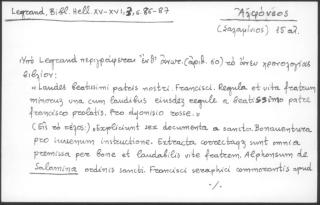 Legrand, Bibl. Hell. XV-XVI, 3, σ. 86-87
Ἀλφόνσος
(Σαλαμίνιος) 15 αἰ.
Ὑπὸ Legrand περιγράφεται ἐνθ' ἀνωτ. (ἀριθ. 60) τὸ ἄνευ χρονολογίας
βιβλίον:
"Laudes beatissimi patris nostri Francisci. Regula et vita fratrum
minorum una cum laudibus eiusdem regule a beatissimo patre
francisco prolatis. Pro dyonisio rosse."
(Εἰς τὸ τέλος:) "Expliciunt sex documenta a sancto Bonaventura
pro iuvenum instructione. Extracta correctaqz sunt omnia
premissa per bone et laudabilis vite fratrem Alphonsum de
Salamina ordinis sancti Francisci seraphici commorantis apud
·/.